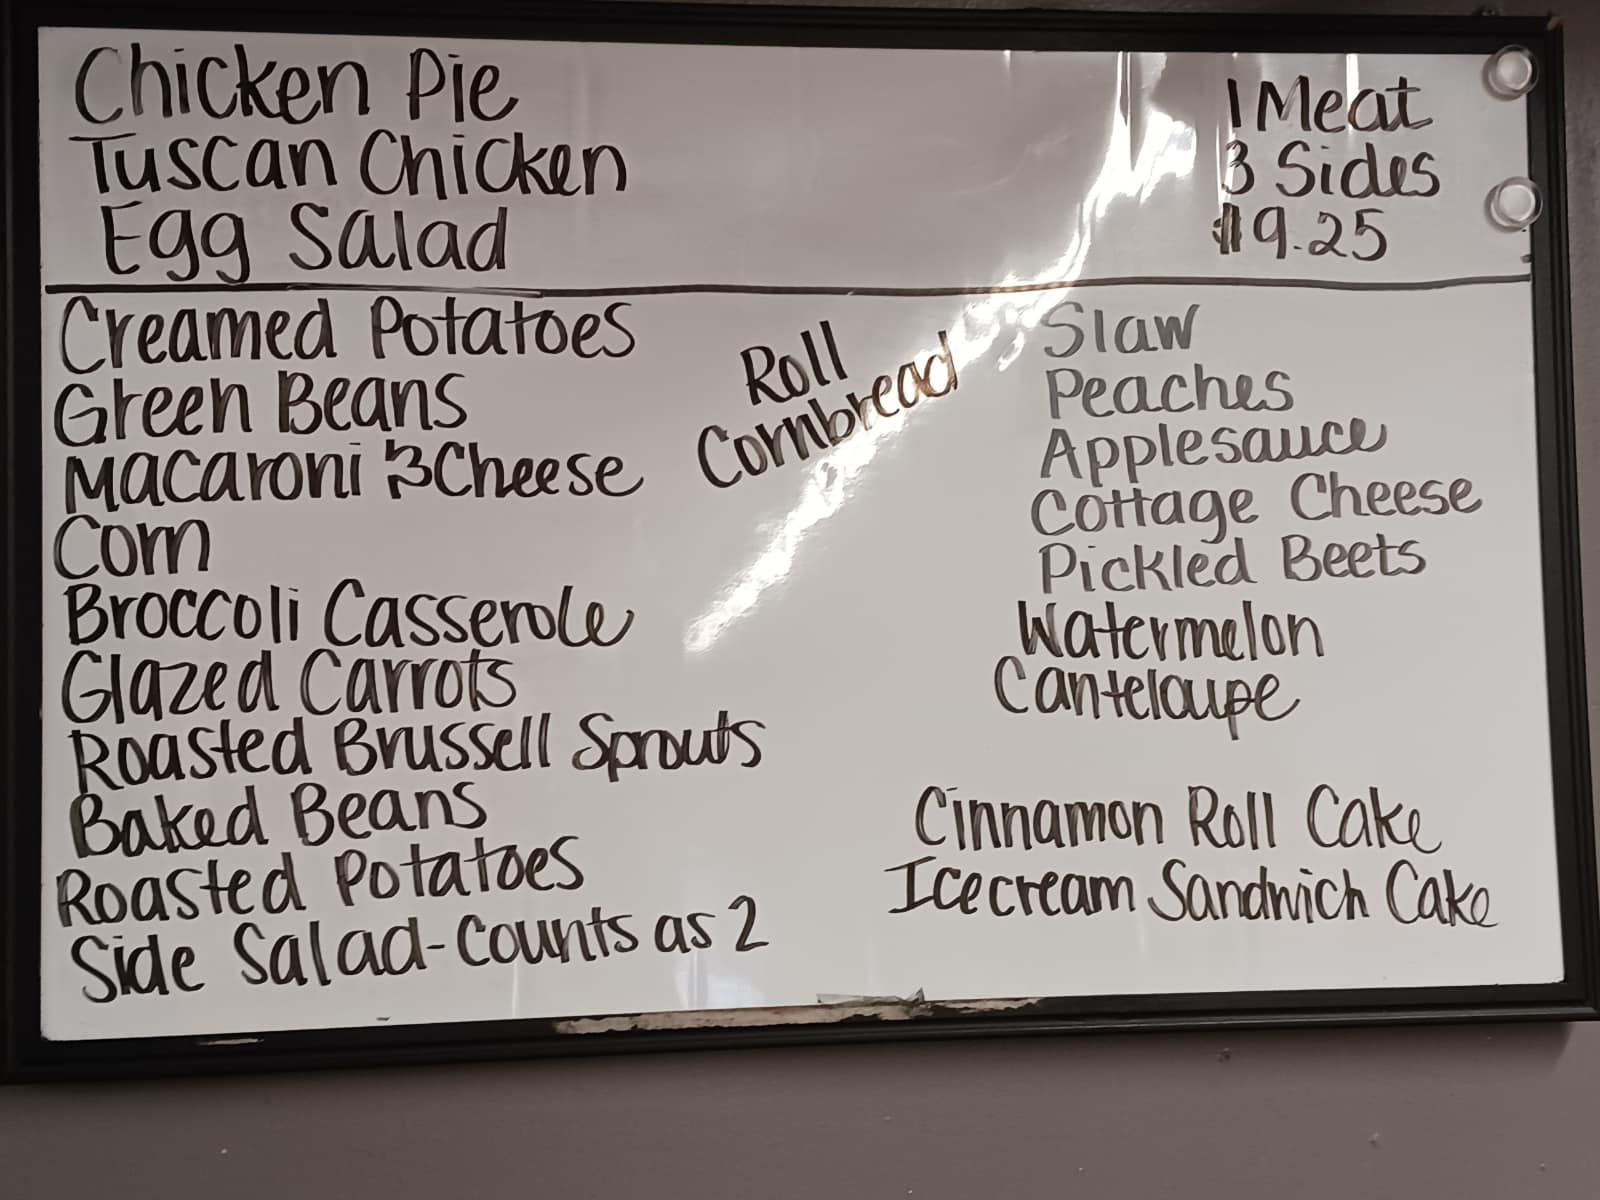 Chicken Pie
Tuscan Chicken
Egg Salad
1 Meat
3 Sides
$9.25
Creamed Potatoes
Green Beans
Macaroni & Cheese
Corn
Broccoli Casserole
Glazed Carrots
Roasted Brussell Sprouts
Baked Beans
Roasted Potatoes
Side Salad-Counts as 2
Roll
Cornbread
Slaw
Peaches
Applesauce
Cottage Cheese
Pickled Beets
Watermelon
Canteloupe
Cinnamon Roll Cake
Icecream Sandwich Cake